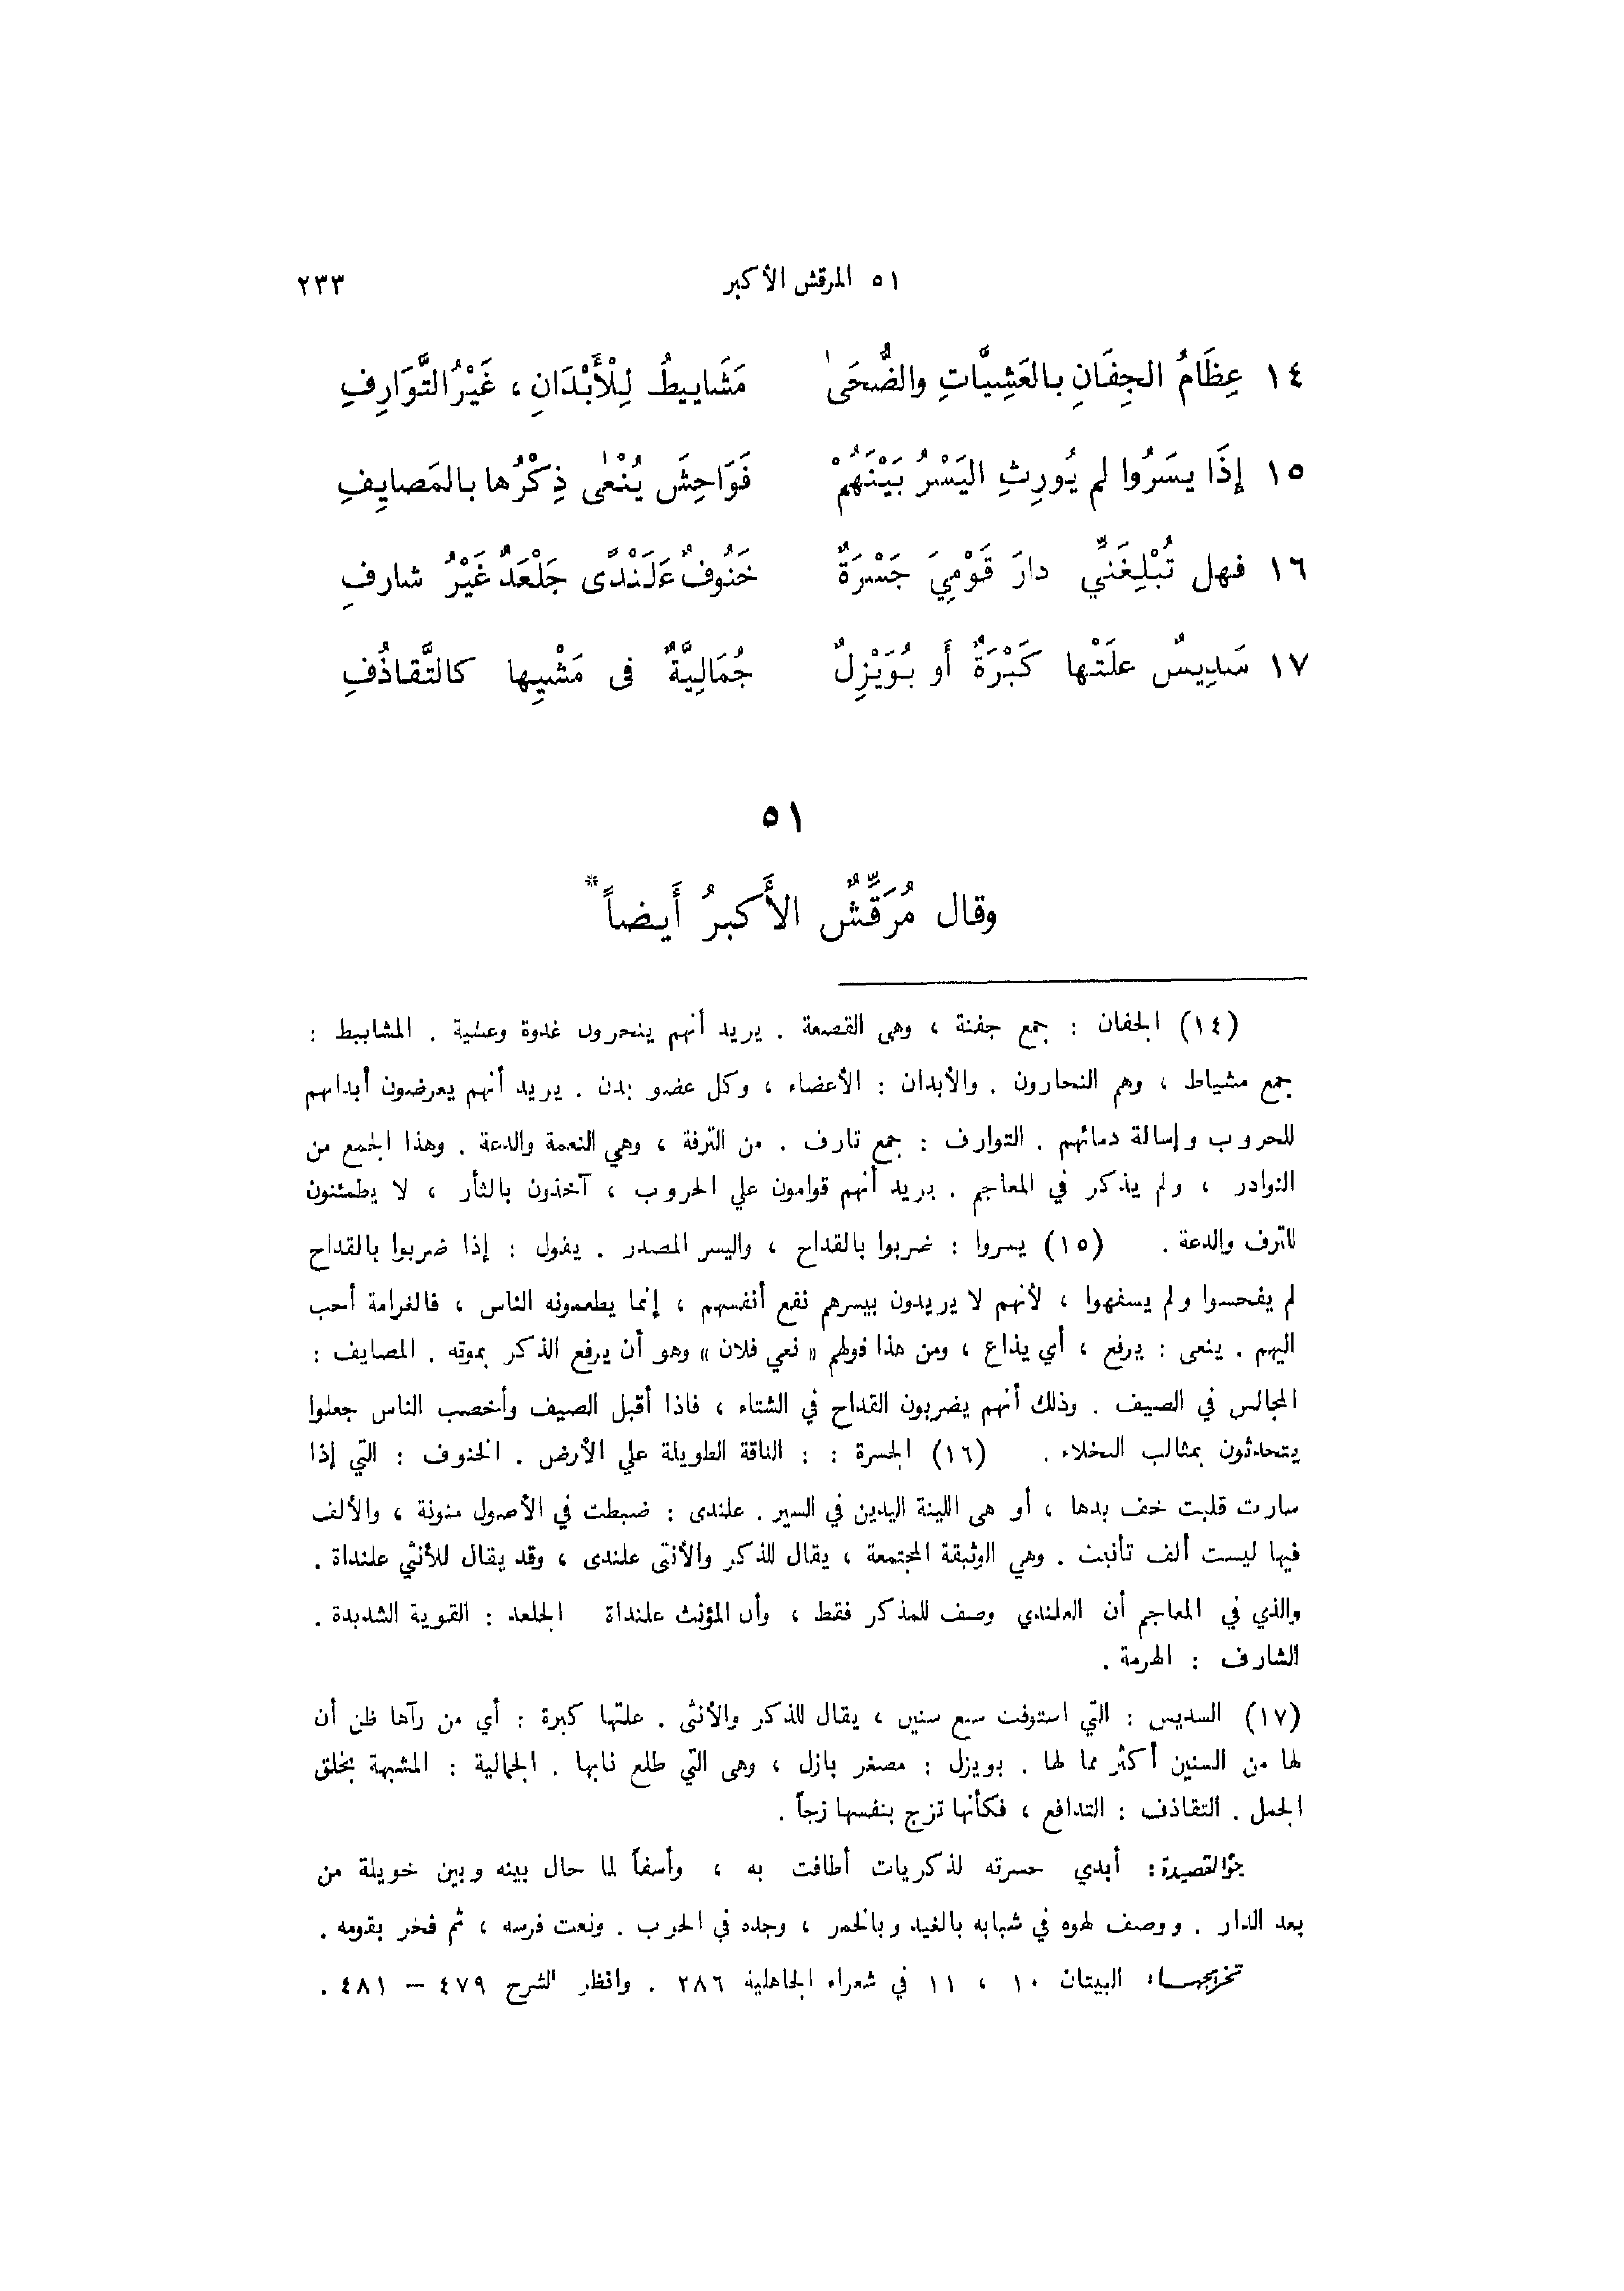 ٥١ المرقش الأكبر ٢٣٣
١٤ عِظَامُ الجِفَانِ بالعَشِيَّاتِ والضُّحَىٰ مَشَايِيطُ لِلْأَبْدَانِ ، غَيْرُ التَّوَارِفِ
١٥ إِذَا يسَرُوا لم يُورِثِ اليَسْرُ بَيْنَهُمْ فَوَاحِشَ يُنْعٰى ذِكْرُها بالمَصايِفِ
١٦ فهل تُبْلِغَنِّي دارَ قَوْمِيَ جَسْرَةٌ خَنُوفٌ عَلَنْدًى جَلْعَدٌ غَيْرُ شارفِ
١٧ سَدِيسٌ علَتْها كَبْرَةٌ أو بُوَيْزِلٌ جُمَالِيَّةٌ فى مَشْيِها كالتَّقاذُفِ
٥١
وقال مُرَقِّشٌ الأَكبرُ أَيضاً*
(١٤) الجفان : جمع جفنة ، وهى القصعة . يريد أنهم ينحرون غدوة وعشية . المشاييط :
جمع مشياط ، وهم النحارون . والأبدان : الأعضاء ، وكل عضو بدن . يريد أنهم يعرضون أبدانهم
للحروب وإسالة دمائهم . التوارف : جمع تارف . من الترفة ، وهي النعمة والدعة . وهذا الجمع من
النوادر ، ولم يذكر في المعاجم . يريد أنهم قوامون علي الحروب ، آخذون بالثأر ، لا يطمئنون
للترف والدعة . (١٥) يسروا : ضربوا بالقداح ، واليسر المصدر . يقول : إذا ضربوا بالقداح
لم يفحسوا ولم يسفهوا ، لأنهم لا يريدون بيسرهم نفع أنفسهم ، إنما يطعمونه الناس ، فالغرامة أحب
اليهم . ينعى : يرفع ، أي يذاع ، ومن هذا قولهم « نعي فلان » وهو أن يرفع الذكر بموته . المصايف :
المجالس في الصيف . وذلك أنهم يضربون القداح في الشتاء ، فاذا أقبل الصيف وأخصب الناس جعلوا
يتحدثون بمثالب البخلاء . (١٦) الجسرة : : الناقة الطويلة علي الأرض . الخنوف : التي إذا
سارت قلبت خف يدها ، أو هى اللينة اليدين في السير . علندى : ضبطت في الأصول منونة ، والألف
فيها ليست ألف تأنيث . وهي الوثيقة المجتمعة ، يقال للذكر والأنثى علندى ، وقد يقال للأنثي علنداة .
والذي في المعاجم أن العلندي وصف للمذكر فقط ، وأن المؤنث علنداة الجلعد : القوية الشديدة .
الشارف : الهرمة .
(١٧) السديس : التي استوفت سبع سنين ، يقال للذكر والأنثى . علتها كبرة : أي من رآها ظن أن
لها من السنين أكثر مما لها . بويزل : مصغر بازل ، وهى التي طلع نابها . الجمالية : المشبهة بخلق
الجمل . التقاذف : التدافع ، فكأنها تزج بنفسها زجاً .
* جو القصيدة : أبدي حسرته لذكريات أطافت به ، وأسفاً لما حال بينه وبين خويلة من
بعد الدار . ووصف لهوه في شبابه بالغيد وبالخمر ، وجده في الحرب . ونعت فرسه ، ثم فخر بقومه .
تخريجها : البيتان ١٠ ، ١١ في شعراء الجاهلية ٢٨٦ . وانظر الشرح ٤٧٩ — ٤٨١ .